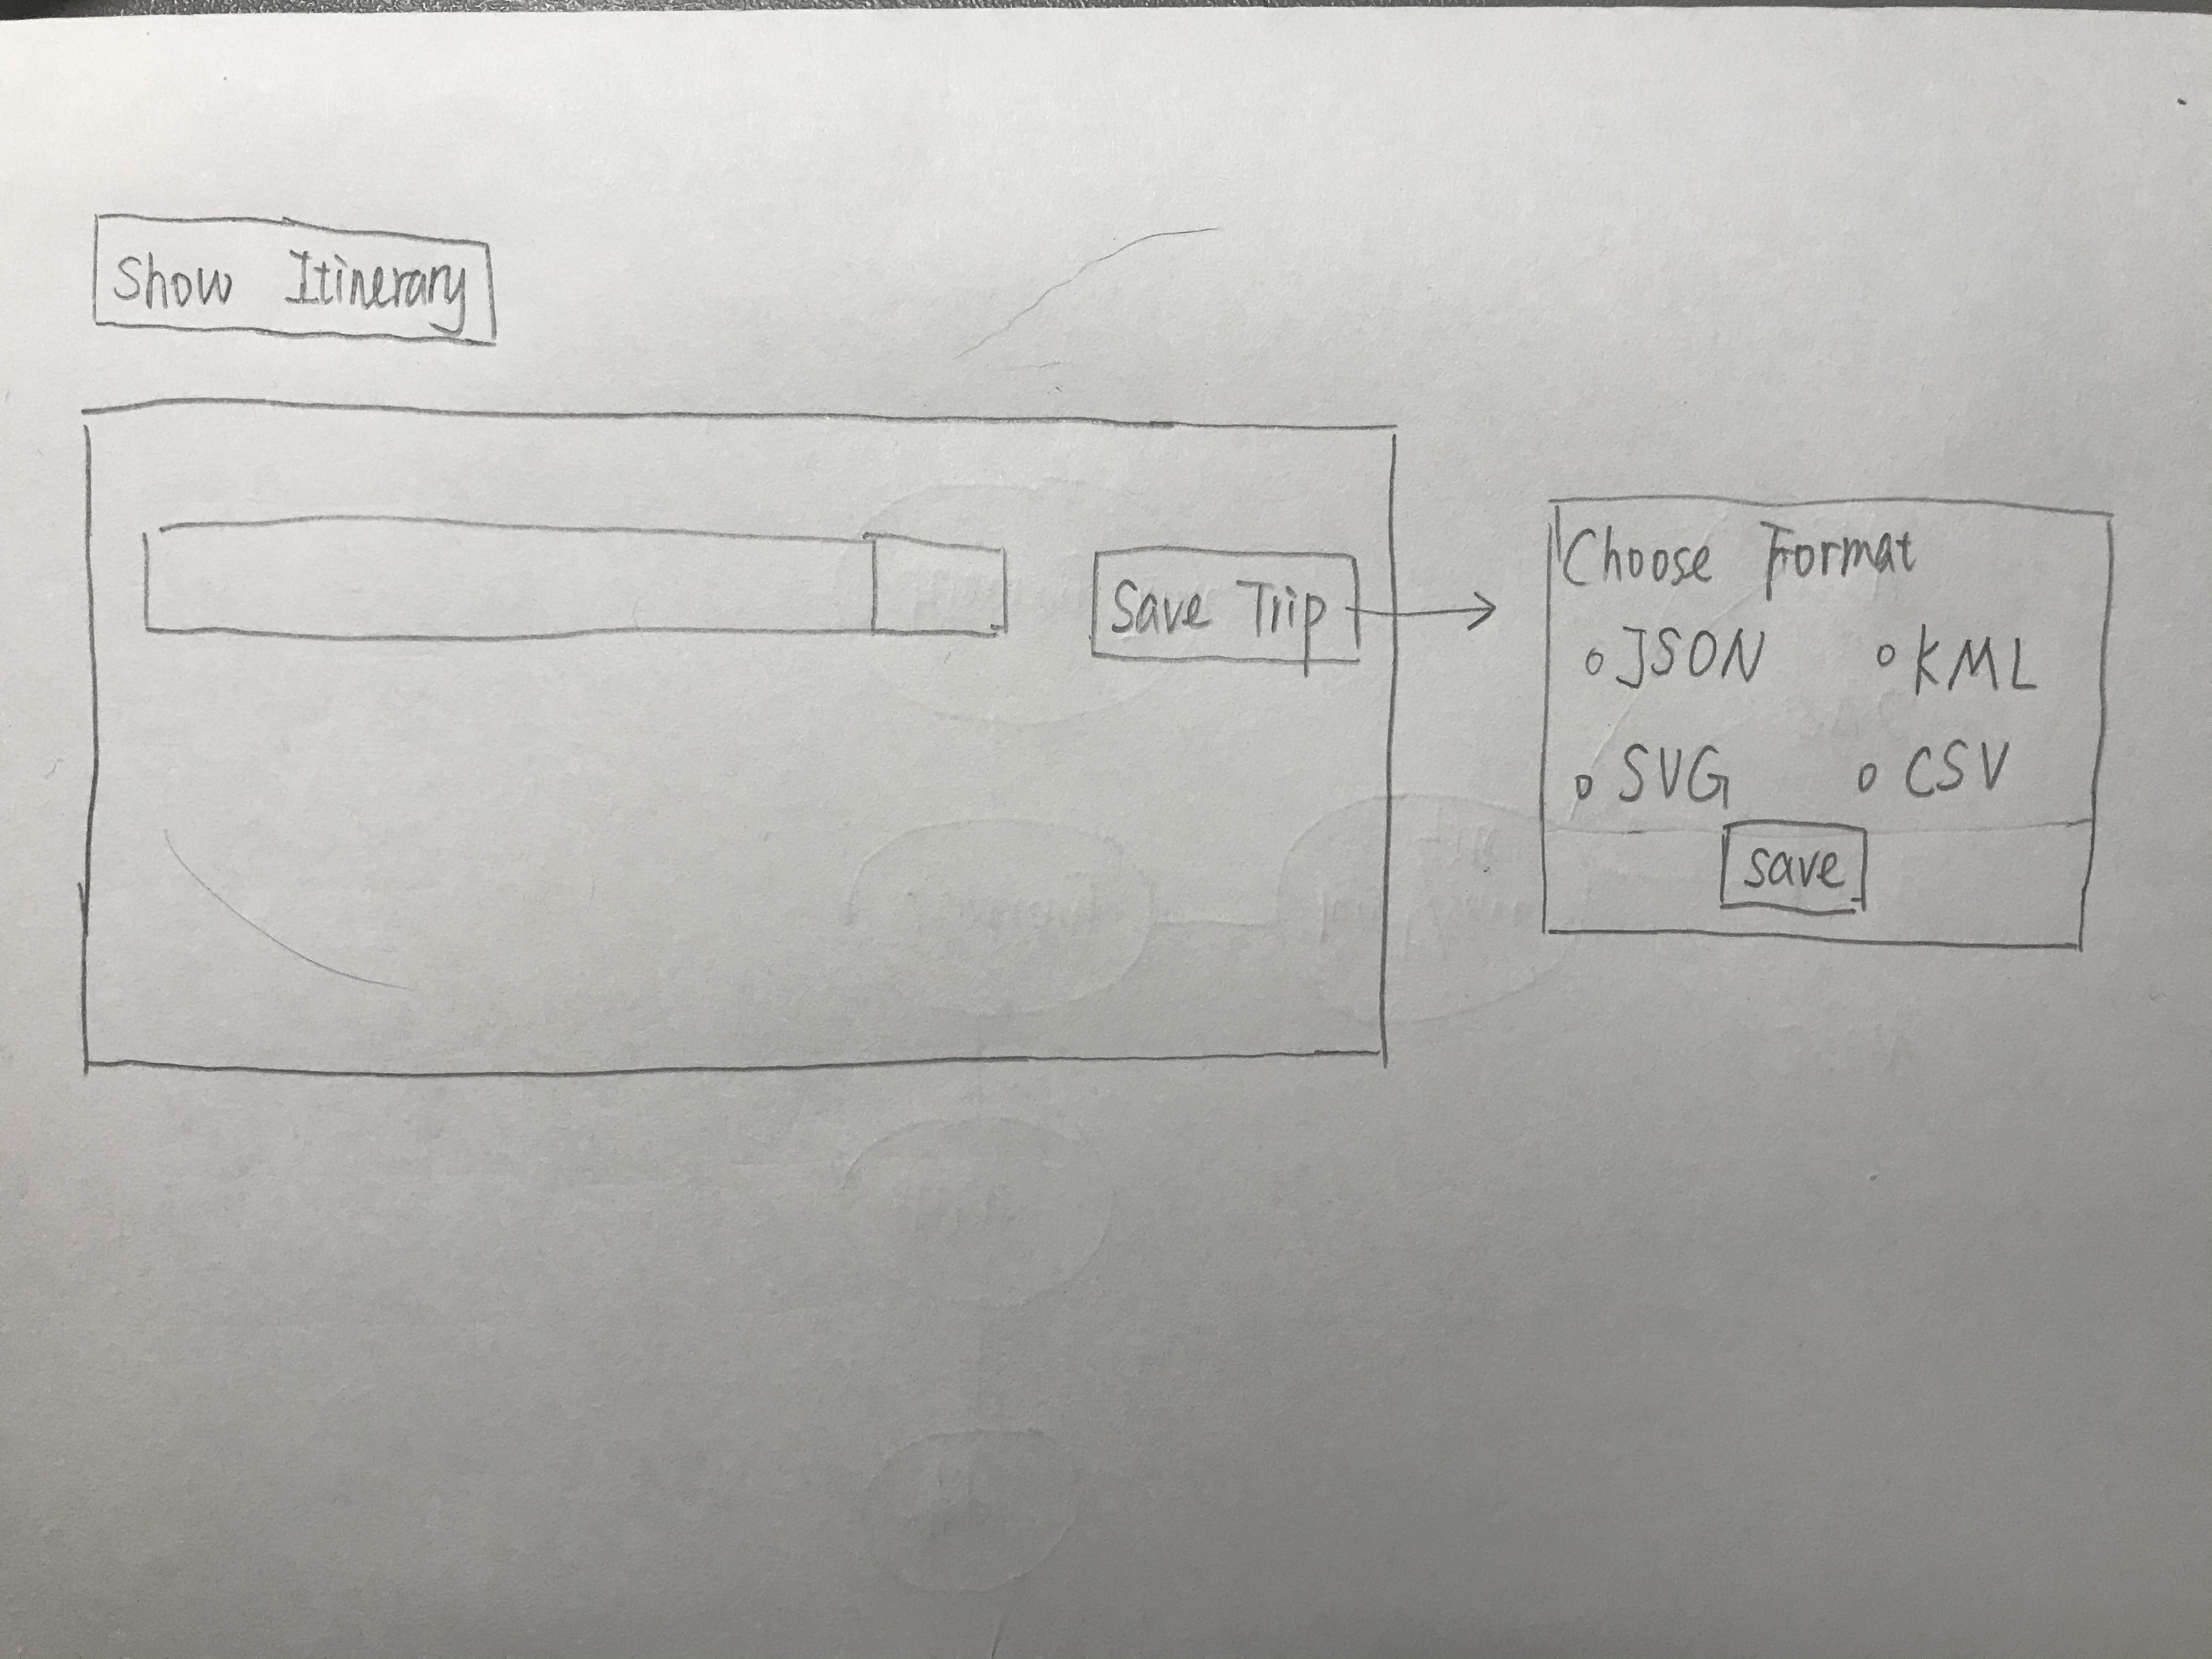 Show Itinerary
Save Trip
Choose Format
JSON KML
SVG CSV
save